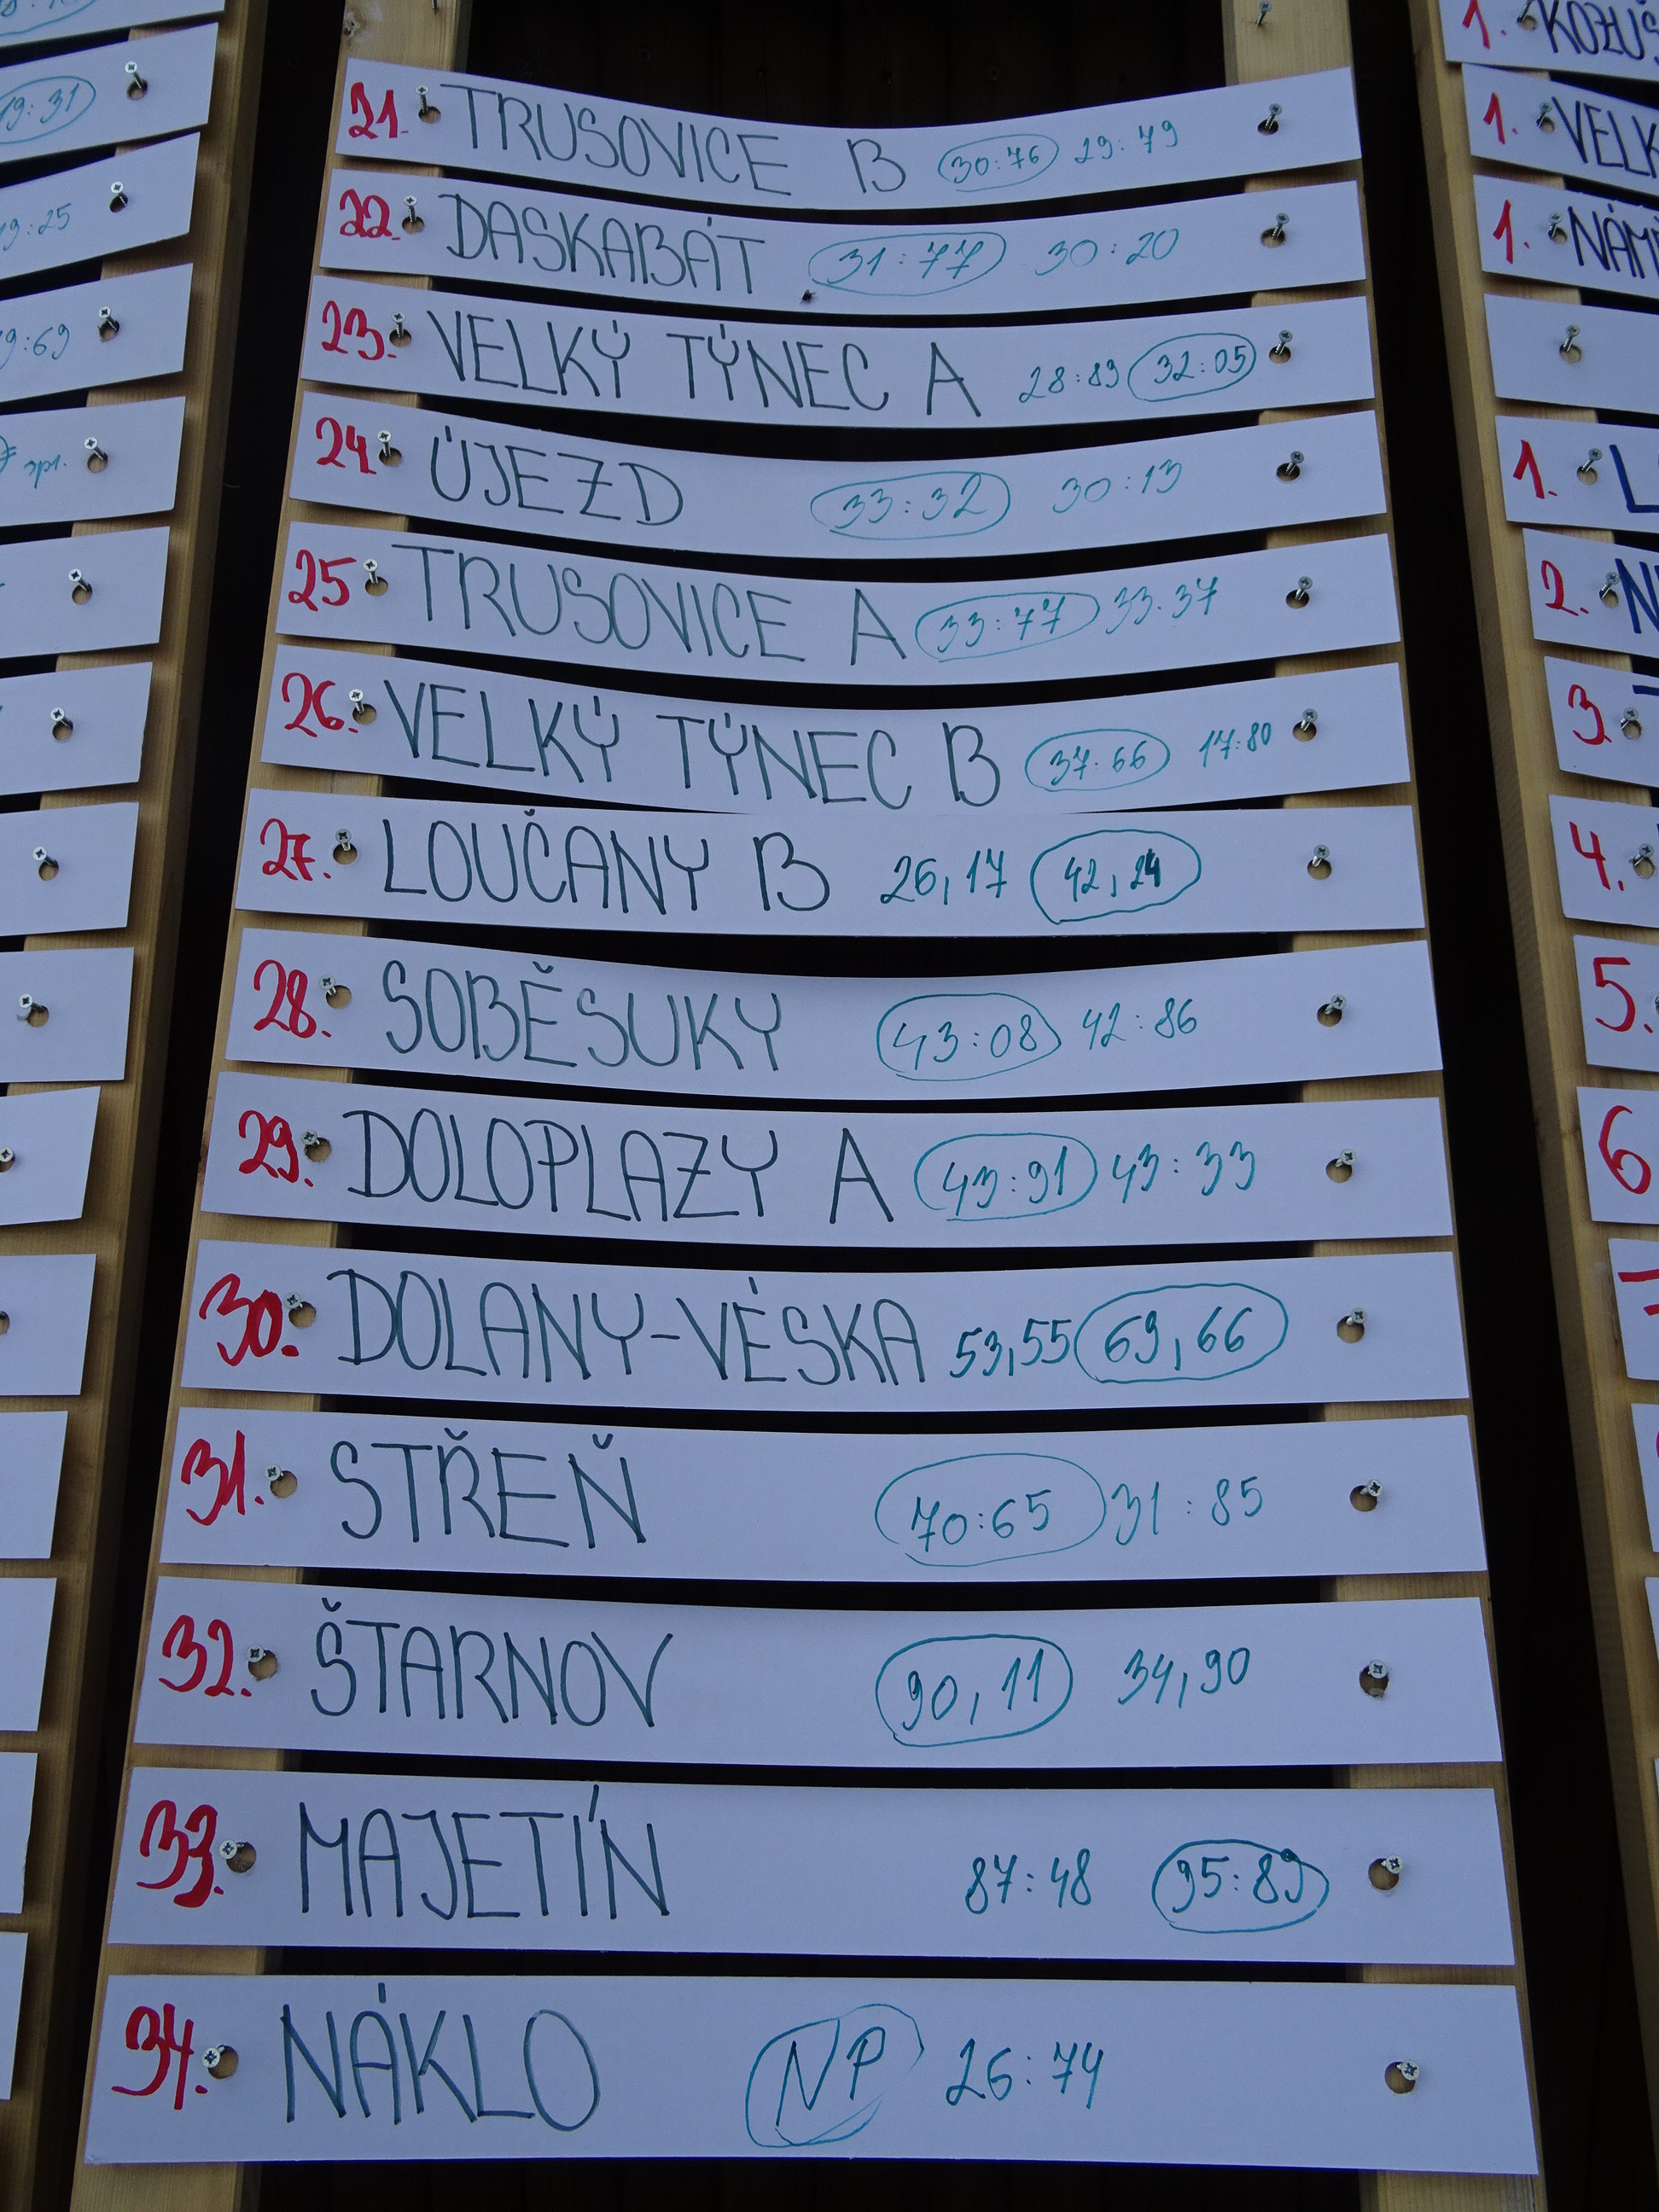 19:31
19:25
9:69
21. TRUSOVICE B 30:76 29:79
22. DASKABÁT 31:77 30:20
23. VELKÝ TÝNEC A 28:89 32:05
24. ÚJEZD 33:32 30:13
25. TRUSOVICE A 33:77 33.37
26. VELKÝ TÝNEC B 37.66 17:80
27. LOUČANY B 26,17 42,24
28. SOBĚSUKY 43:08 42:86
29. DOLOPLAZY A 43:91 43:33
30. DOLANY-VÉSKA 53,55 69,66
31. STŘEŇ 70:65 31:85
32. ŠTARNOV 90,11 34,90
33. MAJETÍN 87:48 95:89
34. NÁKLO NP 26:74
1. KOZUŠ
1. VELK
1. NÁM
1. L
2. N
3.
4.
5.
6